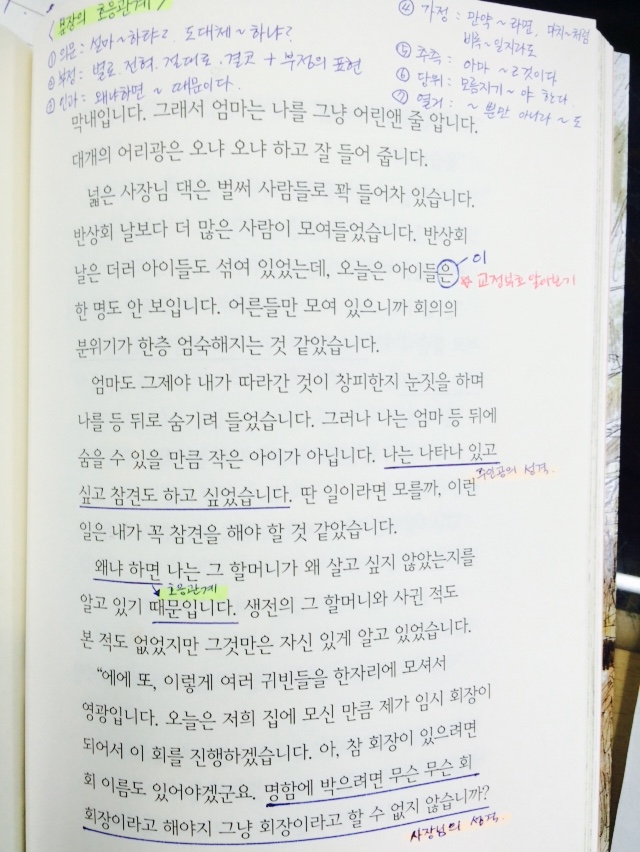 <문장의 호응관계>
① 의문 : 설마~하랴?, 도대체~하냐?
② 부정 : 별로, 전혀, 절대로, 결코 + 부정의 표현
③ 인과 : 왜냐하면 ~ 때문이다.
④ 가정 : 만약 ~ 라면, 마치~처럼
비록 ~ 일지라도
⑤ 추측 : 아마 ~ 것이다
⑥ 당위 : 모름지기 ~ 야 한다.
⑦ 열거 : ~ 뿐만 아니라 ~ 도
막내입니다. 그래서 엄마는 나를 그냥 어린앤 줄 압니다.
대개의 어리광은 오냐 오냐 하고 잘 들어 줍니다.
넓은 사장님 댁은 벌써 사람들로 꽉 들어차 있습니다.
반상회 날보다 더 많은 사람이 모여들었습니다. 반상회
이
날은 더러 아이들도 섞여 있었는데, 오늘은 아이들은
교정부호 알아보기
한 명도 안 보입니다. 어른들만 모여 있으니까 회의의
분위기가 한층 엄숙해지는 것 같았습니다.
엄마도 그제야 내가 따라간 것이 창피한지 눈짓을 하며
나를 등 뒤로 숨기려 들었습니다. 그러나 나는 엄마 등 뒤에
숨을 수 있을 만큼 작은 아이가 아닙니다. 나는 나타나 있고
주인공의 성격.
싶고 참견도 하고 싶었습니다. 딴 일이라면 모를까, 이런
일은 내가 꼭 참견을 해야 할 것 같았습니다.
왜냐 하면 나는 그 할머니가 왜 살고 싶지 않았는지를
호응관계
알고 있기 때문입니다. 생전의 그 할머니와 사귄 적도
본 적도 없었지만 그것만은 자신 있게 알고 있었습니다.
“에에 또, 이렇게 여러 귀빈들을 한자리에 모셔서
영광입니다. 오늘은 저희 집에 모신 만큼 제가 임시 회장이
되어서 이 회를 진행하겠습니다. 아, 참 회장이 있으려면
회 이름도 있어야겠군요. 명함에 박으려면 무슨 무슨 회
회장이라고 해야지 그냥 회장이라고 할 수 없지 않습니까?
사장님의 성격.